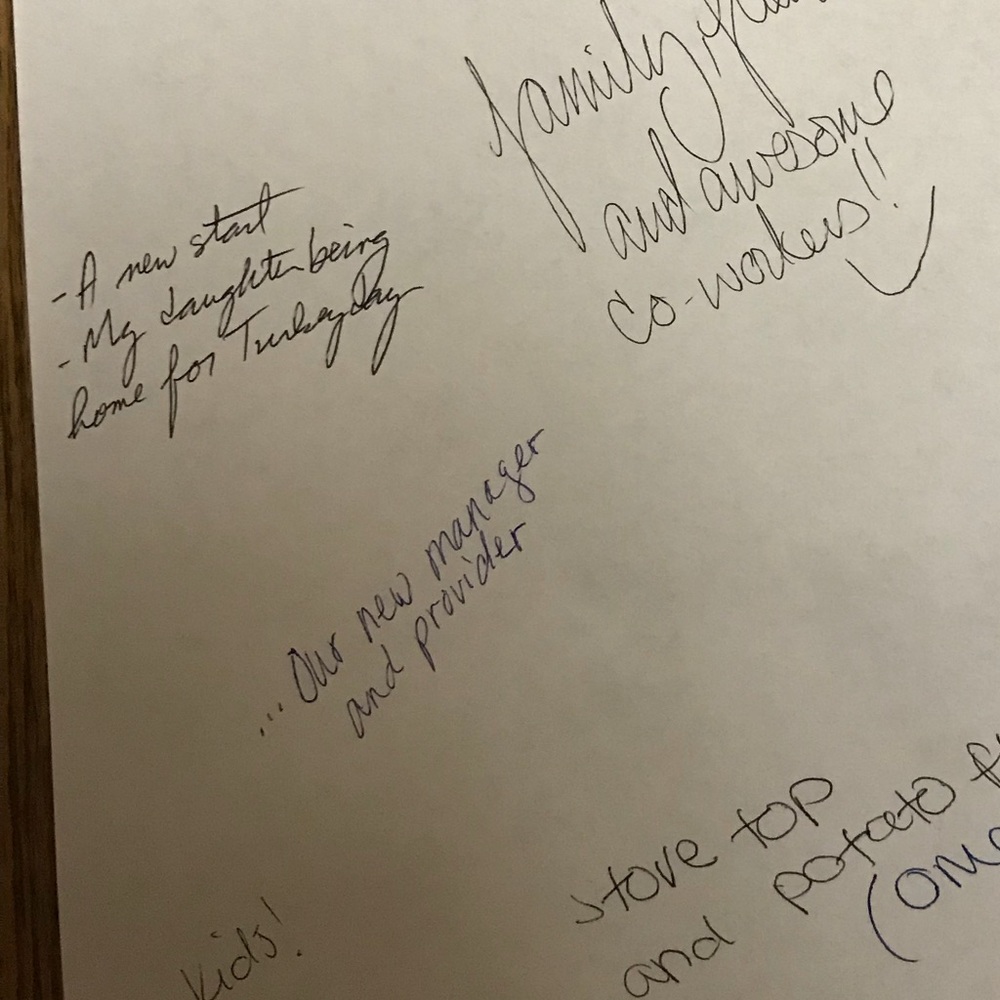 family,
and awesome
co-workers!!
- A new start
- My daughter being
home for Turkey Day
... Our new manager
and provider
stove top
and potato
kids!